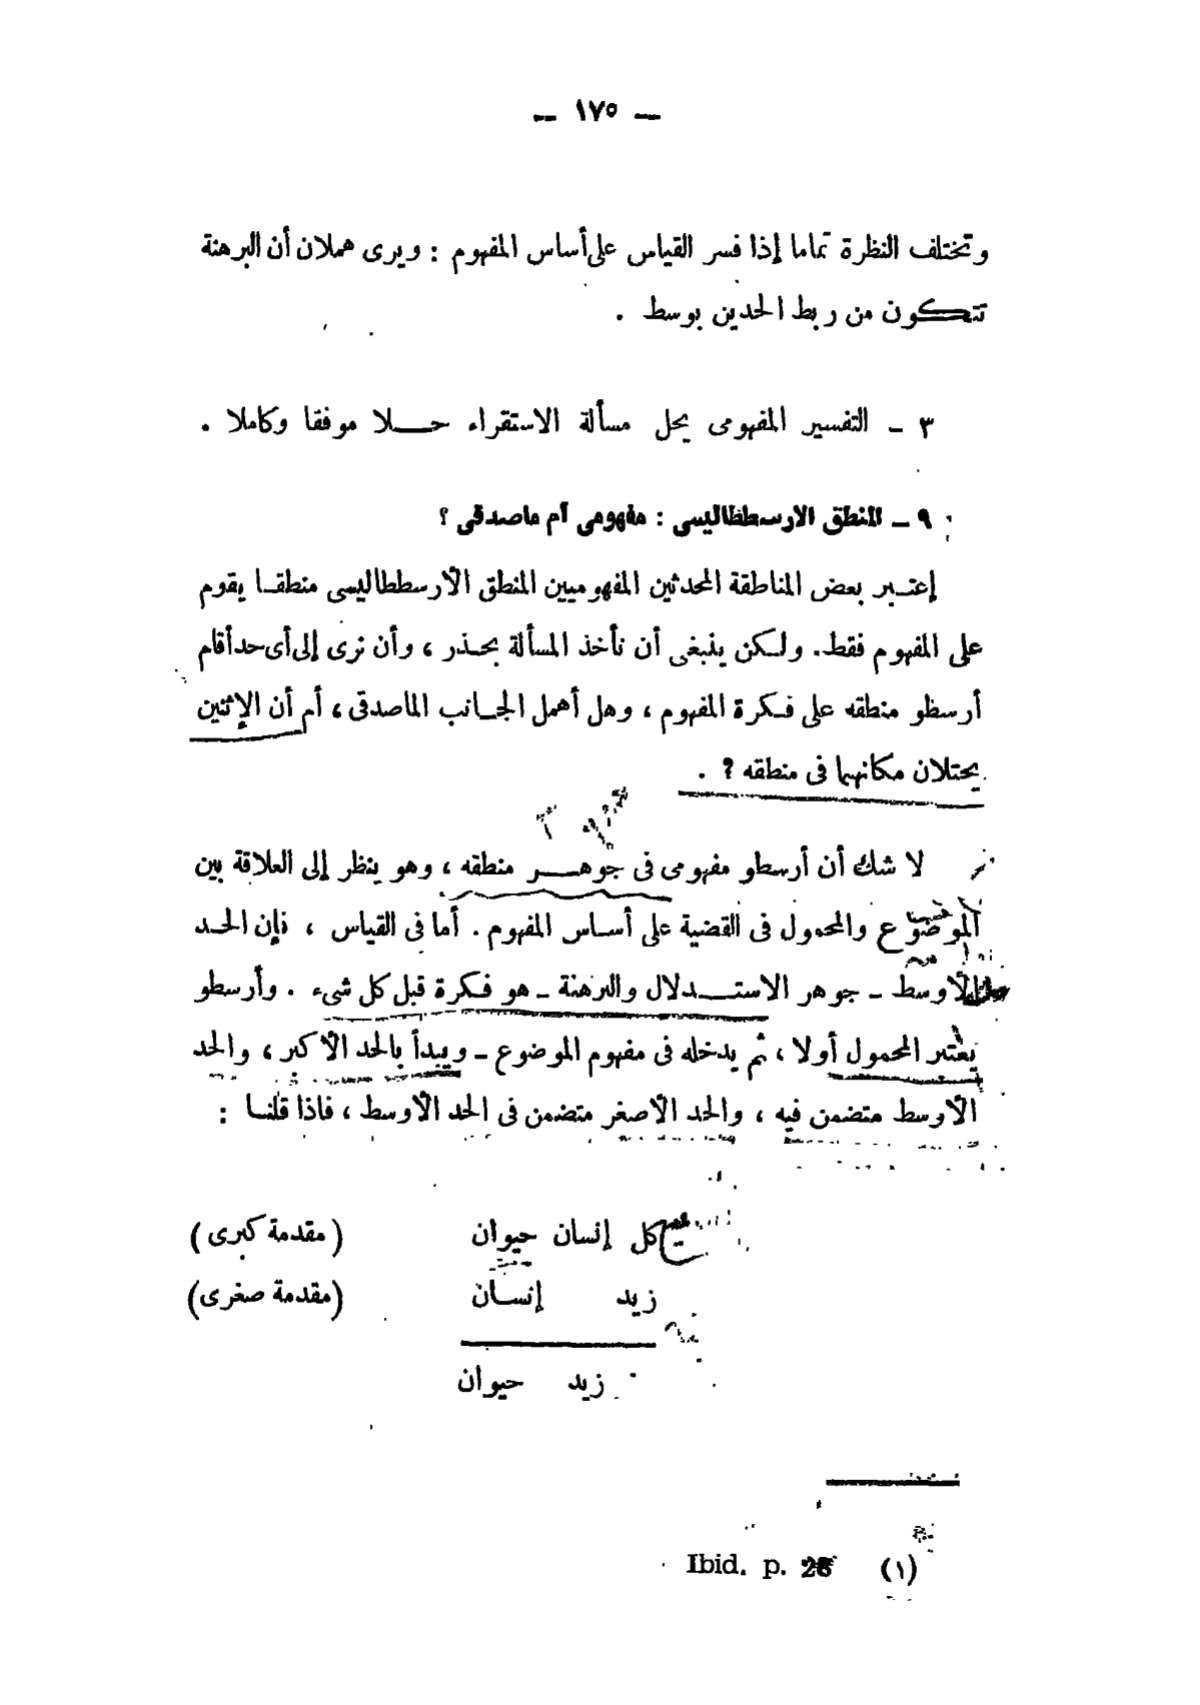 — ١٧٥ —
وتختلف النظرة تماما إذا فسر القياس على أساس المفهوم : ويرى هملان أن البرهنة
تتكون من ربط الحدين بوسط .
٣ – التفسير المفهومى يحل مسألة الاستقراء حلا موفقا وكاملا .
٩ – المنطق الارسططاليسى : مفهومى أم ماصدقى ؟
إعتبر بعض المناطقة المحدثين المفهوميين المنطق الأرسططاليسى منطقا يقوم
على المفهوم فقط. ولكن ينبغى أن نأخذ المسألة بحذر ، وأن نرى إلى أى حد أقام
أرسطو منطقه على فكرة المفهوم ، وهل أهمل الجانب الماصدقى ، أم أن الإثنين
يحتلان مكانهما فى منطقه ؟ .
لا شك أن أرسطو مفهومى فى جوهر منطقه ، وهو ينظر إلى العلاقة بين
الموضوع والمحمول فى القضية على أساس المفهوم . أما فى القياس ، فإن الحد
الأوسط – جوهر الاستدلال والبرهنة – هو فكرة قبل كل شىء . وأرسطو
يعتبر المحمول أولا ، ثم يدخله فى مفهوم الموضوع – ويبدأ بالحد الأكبر ، والحد
الأوسط متضمن فيه ، والحد الأصغر متضمن فى الحد الأوسط ، فاذا قلنا :
كل إنسان حيوان (مقدمة كبرى)
زيد إنسان (مقدمة صغرى)
زيد حيوان
(١) Ibid. p.